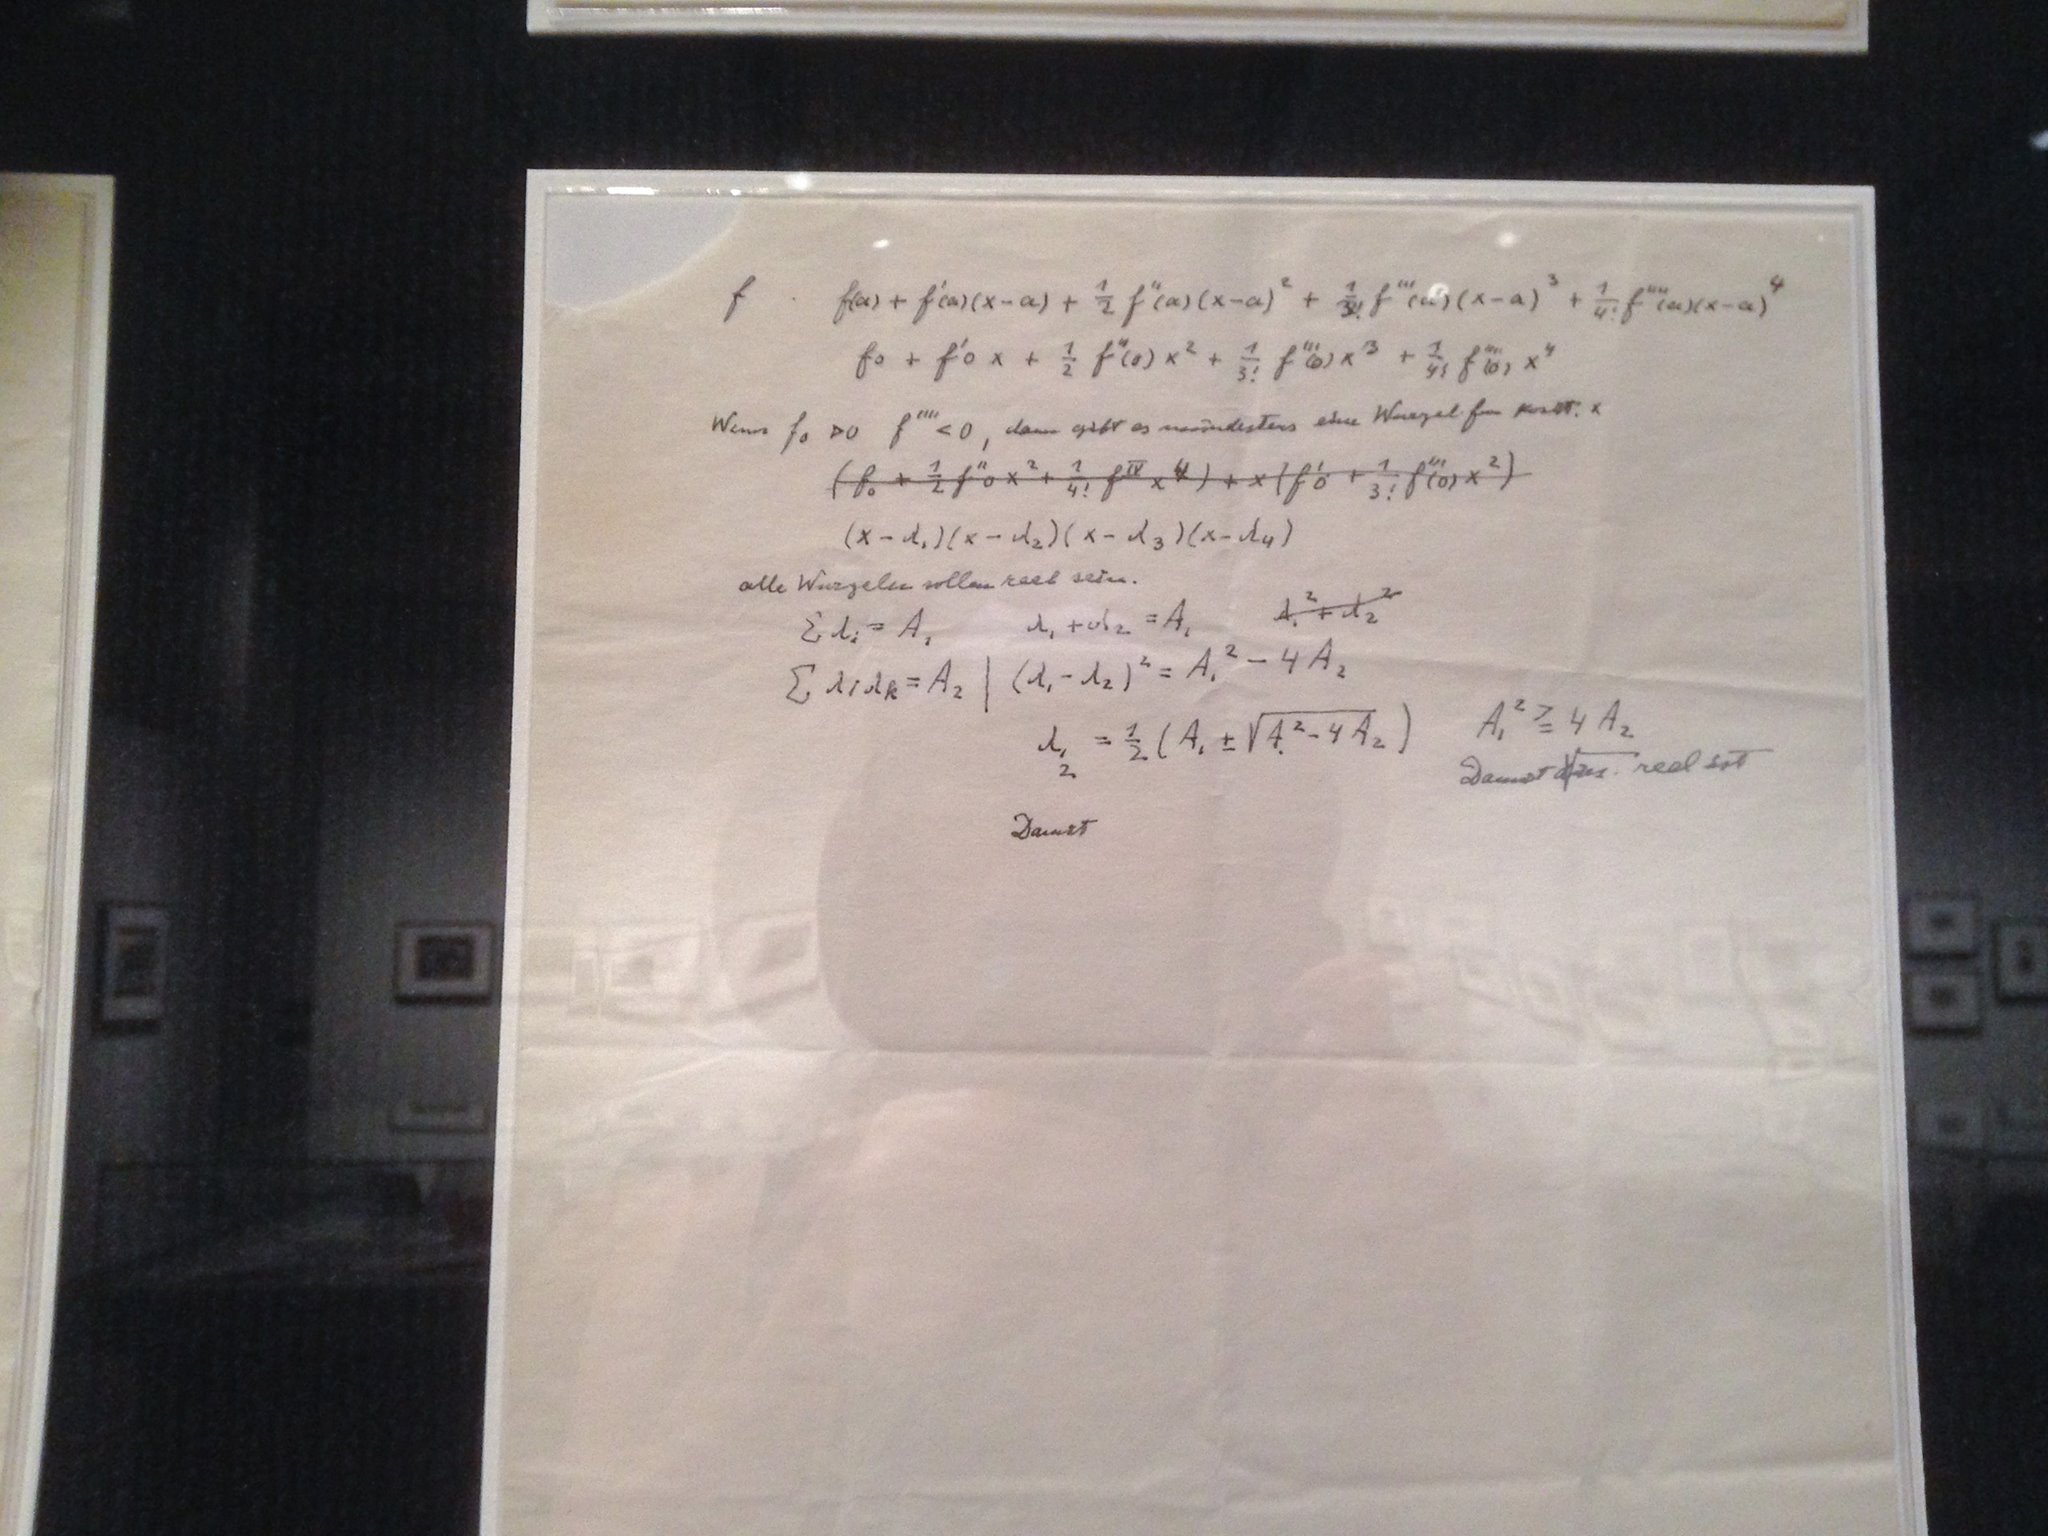 f · f(a) + f'(a)(x-a) + 1/2 f''(a)(x-a)² + 1/3! f'''(a)(x-a)³ + 1/4! f''''(a)(x-a)⁴
f0 + f'0 x + 1/2 f''(0) x² + 1/3! f'''(0) x³ + 1/4! f''''(0) x⁴
Wenn f₀ >0 f'''' < 0, dann gibt es mindestens eine Wurzel für x
(f₀ + 1/2 f''0 x² + 1/4! f^IV x⁴) + x(f'0 + 1/3! f'''(0) x²)
(x-λ₁)(x-λ₂)(x-λ₃)(x-λ₄)
alle Wurzeln sollen reel sein.
Σλi = A₁ λ₁ + λ₂ = A₁ λ₁² + λ₂²
Σ λi λk = A₂ | (λ₁ - λ₂)² = A₁² - 4A₂
λ₁,₂ = 1/2 (A₁ ± √A₁² - 4A₂) A₁² ≥ 4A₂
Damit √ reel ist
Damit